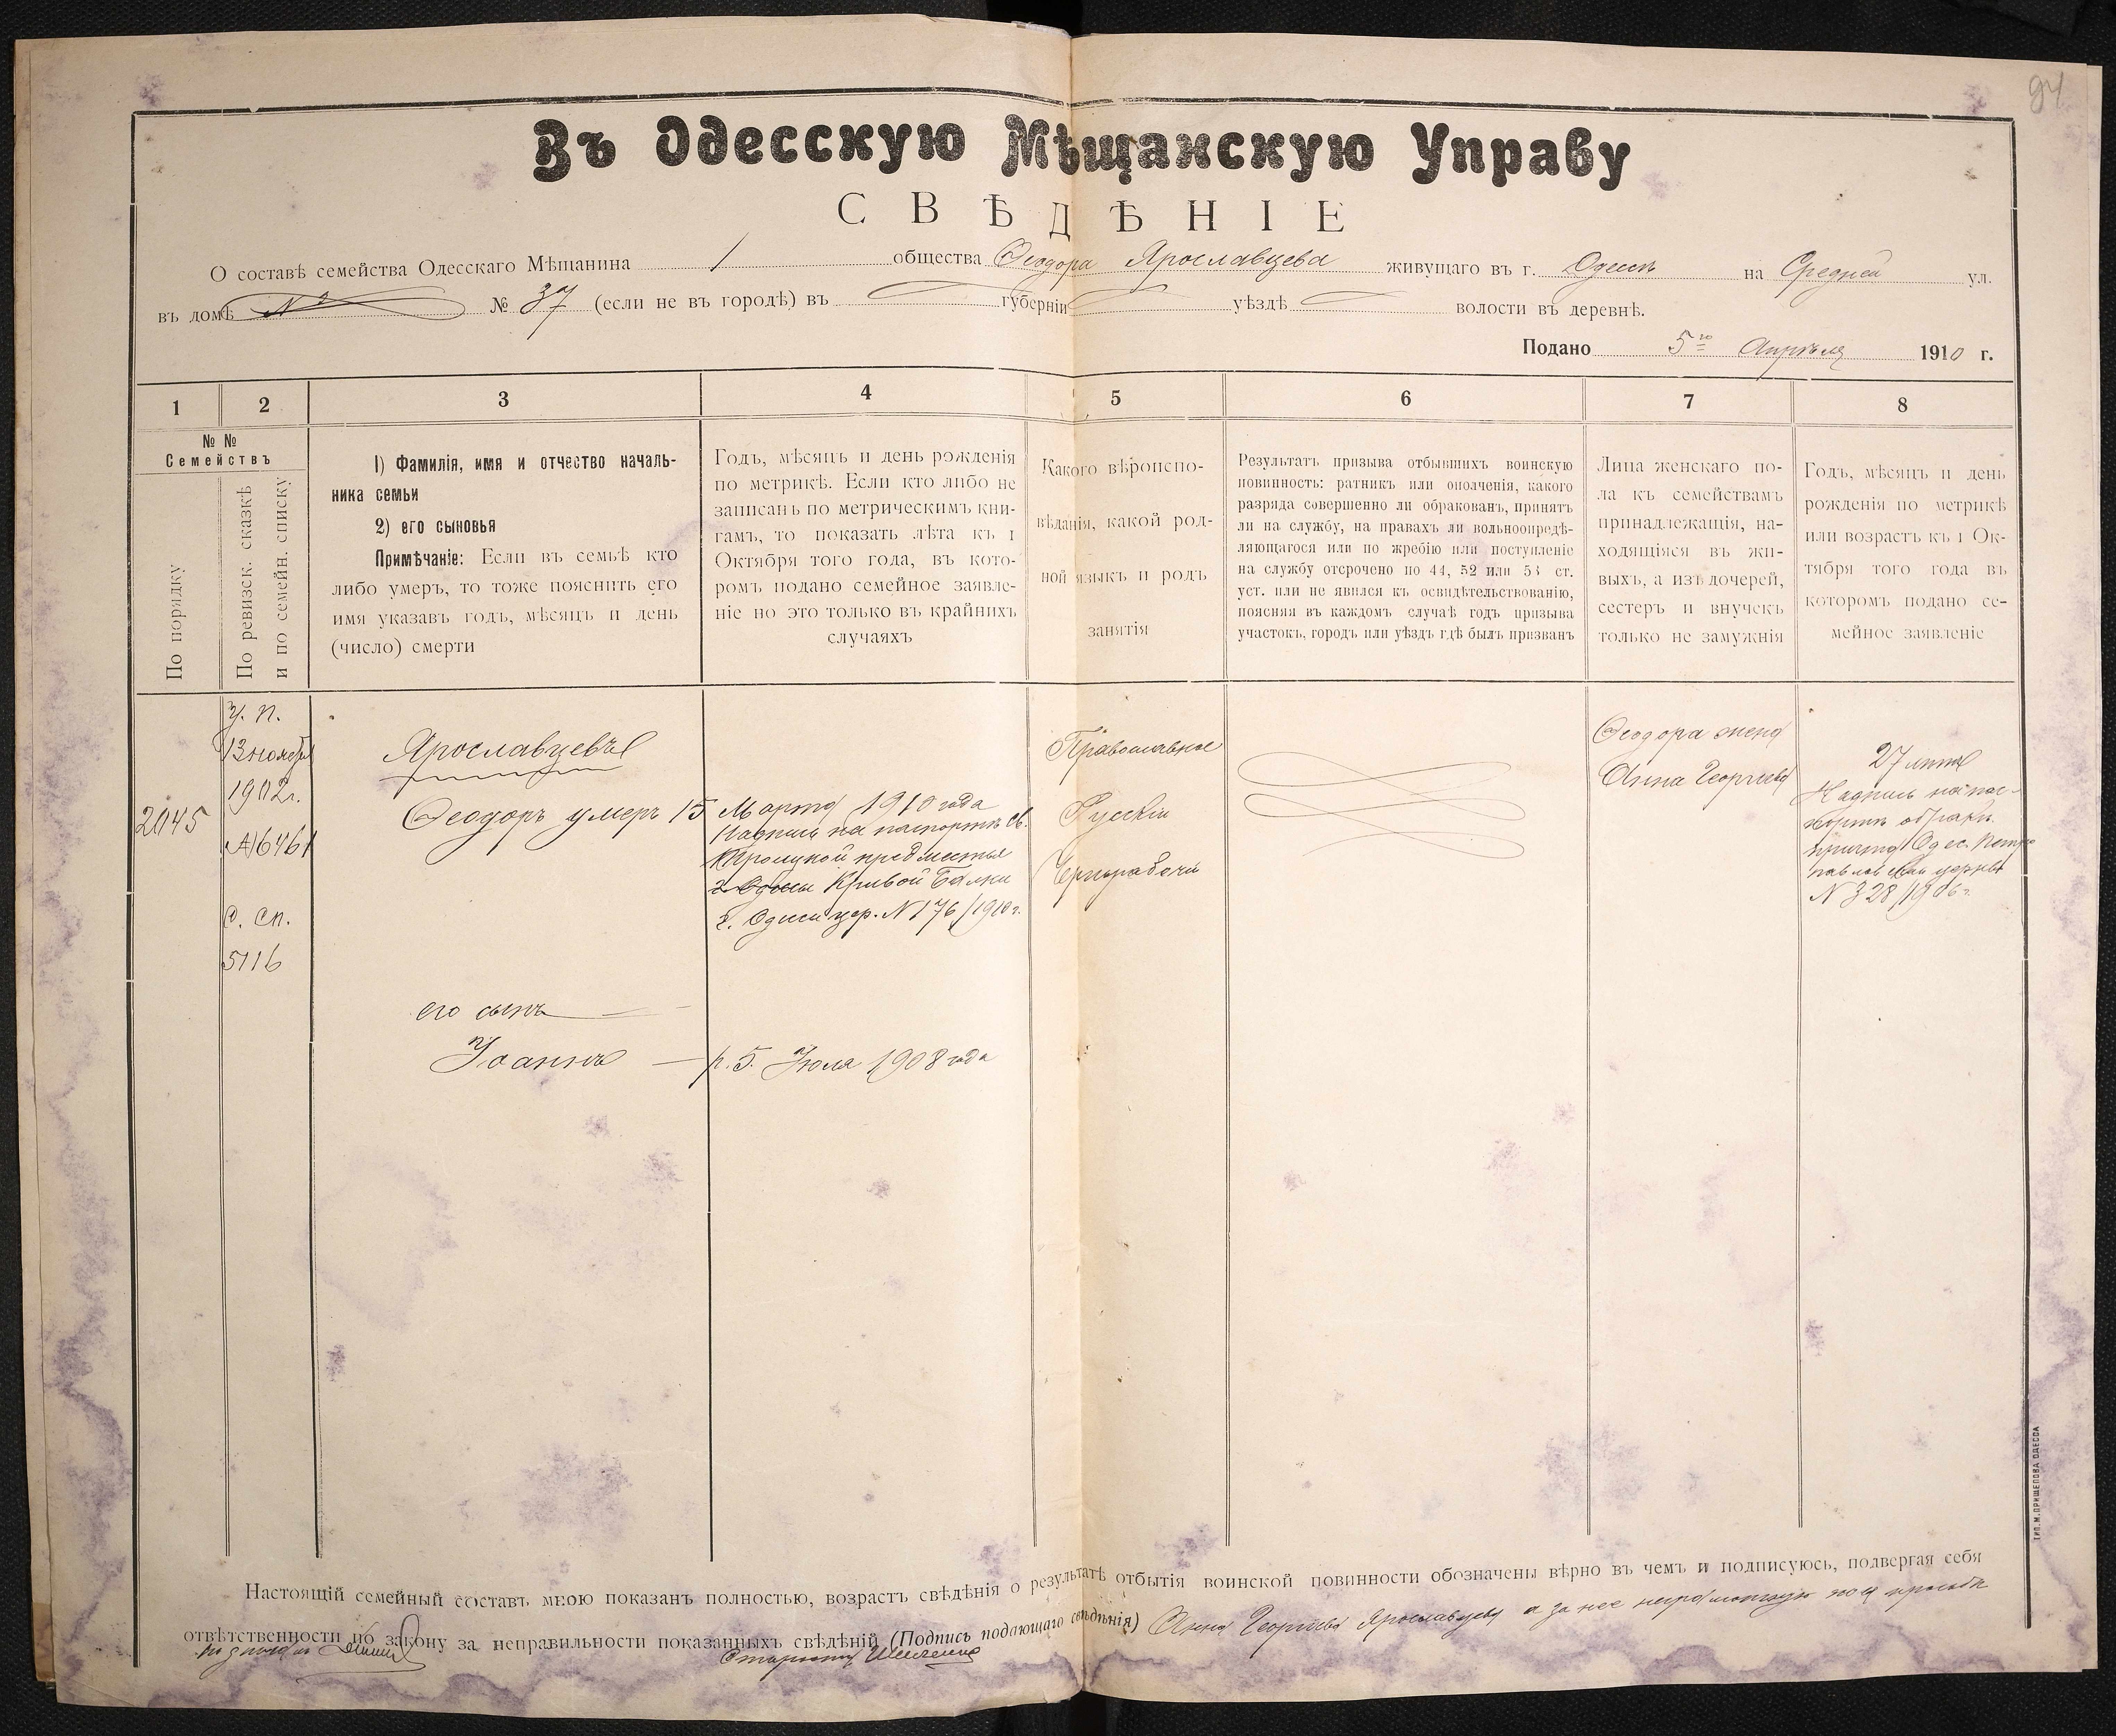 94
Въ Одесскую Мѣщанскую Управу
СВѢДѢНІЕ
О составѣ семейства Одесскаго Мѣщанина 1 общества Ѳеодора Ярославцева живущаго въ г. Одессѣ на Средней ул.
въ домѣ № № 37 (если не въ городѣ) въ губерніи уѣздѣ волости въ деревнѣ.
Подано 5го Апрѣля 1910 г.
1 2 3 4 5 6 7 8
№ №
Семействъ
По порядку
По ревизск. сказкѣ
и по семейн. списку
1) Фамилія, имя и отчество началь-
ника семьи
2) его сыновья
Примѣчаніе: Если въ семьѣ кто
либо умеръ, то тоже пояснить его
имя указавъ годъ, мѣсяцъ и день
(число) смерти
Годъ, мѣсяцъ и день рожденія
по метрикѣ. Если кто либо не
записанъ по метрическимъ кни-
гамъ, то показать лѣта къ 1
Октября того года, въ кото-
ромъ подано семейное заявле-
ніе но это только въ крайнихъ
случаяхъ
Какого вѣроиспо-
вѣданія, какой род-
ной языкъ и родъ
занятія
Результатъ призыва отбывшихъ воинскую
повинность: ратникъ или ополченія, какого
разряда совершенно ли обракованъ, принятъ
ли на службу, на правахъ ли вольноопредѣ-
ляющагося или по жребію или поступленіе
на службу отсрочено по 44, 52 или 53 ст.
уст. или не явился къ освидѣтельствованію,
поясняя въ каждомъ случаѣ годъ призыва
участокъ, городъ или уѣздъ гдѣ былъ призванъ
Лица женскаго по-
ла къ семействамъ
принадлежащія, на-
ходящіяся въ жи-
выхъ, а изъ дочерей,
сестеръ и внучекъ
только не замужнія
Годъ, мѣсяцъ и день
рожденія по метрикѣ
или возрастъ къ 1 Ок-
тября того года въ
которомъ подано се-
мейное заявленіе
2045
У. П.
13 ноября
1902г.
А/6461
С. Сп.
5116
Ярославцевъ
Ѳеодоръ умеръ 15 Марта 1910 года
Надпись на паспортѣ св.
Троицкой предместья
Кривой Балки
г. Одессы цер. № 176/1910 г.
его сынъ
Іоаннъ — р. 5. Іюля 1908 года
Православное
Русскій
Чернорабочій
Ѳеодора жена
Анна Георгіева
27 лѣтъ
Надпись на пас-
портѣ о бракѣ
причта Одес. Петро
павловской церкви
№ 328/1906 г.
Настоящій семейный составъ мною показанъ полностью, возрастъ свѣдѣнія о результатѣ отбытія воинской повинности обозначены вѣрно въ чемъ и подписуюсь, подвергая себя
отвѣтственности по закону за неправильности показанныхъ свѣдѣній (Подпись подающаго свѣдѣнія) Анна Георгіева Ярославцева а за нее неграмотную по ея просьбѣ
Староста
ТИП. М. ПРИЩЕПОВА ОДЕССА